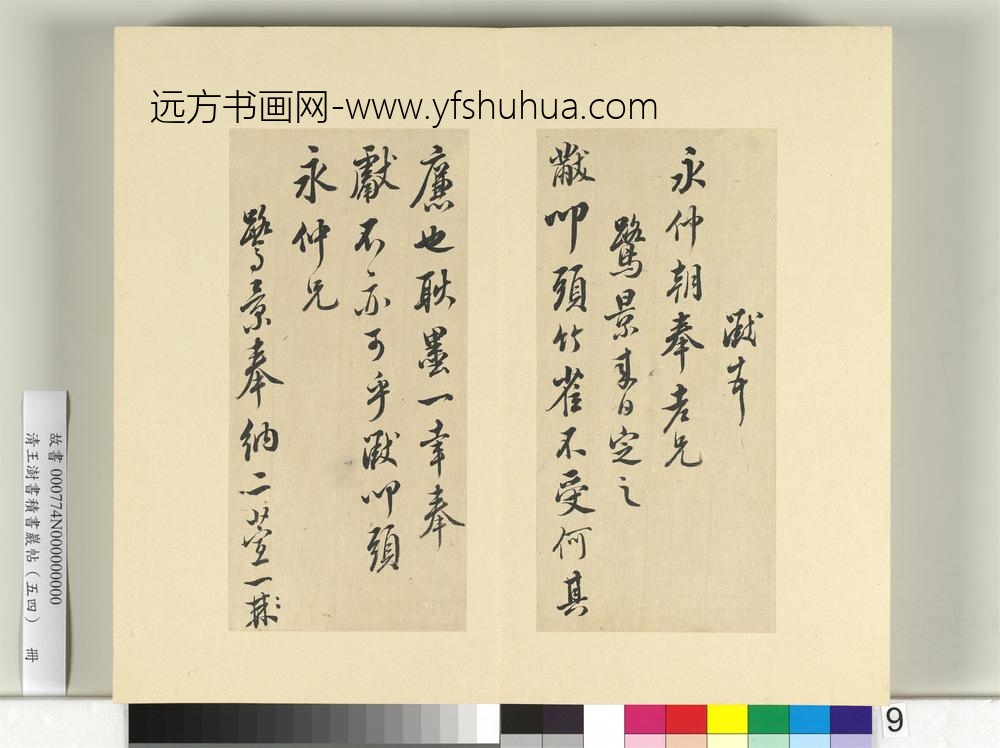 远方书画网-www.yfshuhua.com
黻
永仲朝奉老兄
鷺景來日定之
黻叩頭竹雀不受何其
廉也耿墨一幸奉
獻不亦可乎黻叩頭
永仲兄
鷺景奉納二萱一棘
故書 000774N000000000
清王澍書積書巖帖（五四） 冊
9